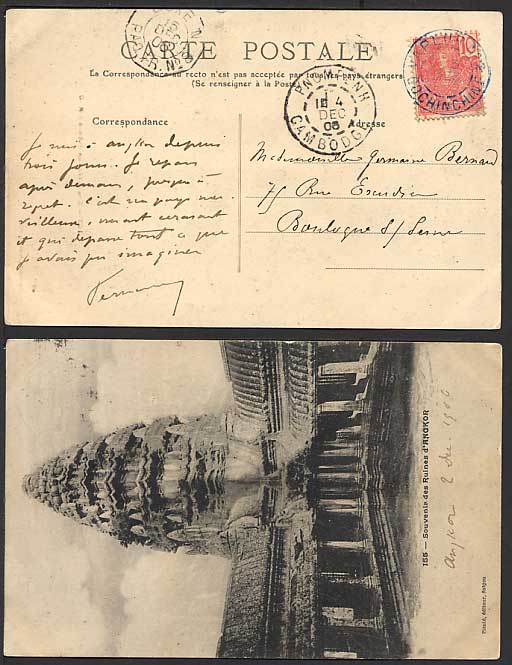 CARTE POSTALE
La Correspondance au recto n'est pas acceptée par tous les pays étrangers
(Se renseigner à la Poste)
PNOMPENH
1E 4
DEC
06
CAMBODGE
10
COCHINCHINE
Correspondance
Adresse
Je suis à angkor depuis
trois jours. Je repars
après demain, jusqu'à
regret. C'est un pays mer-
veilleux, mont
et qui dépasse tout ce que
j'avais pu imaginer
Mademoiselle Germaine Bernard
75 Rue Escudier
Boulogne S/ Seine
155 — Souvenir des Ruines d'ANGKOR
Angkor 2 Dec. 1906
Planté, éditeur, Saigon